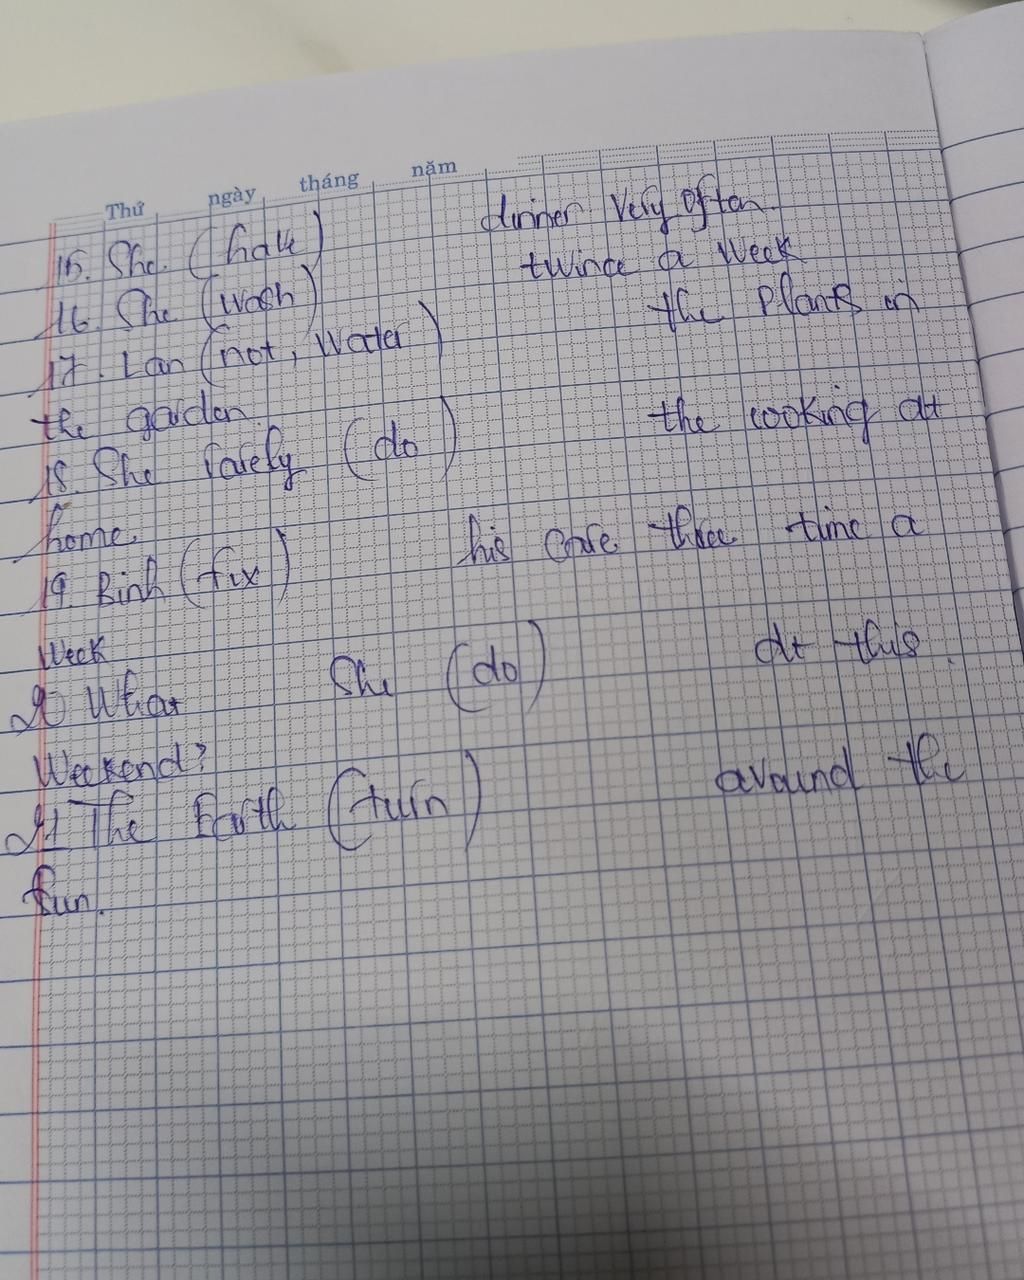 Thứ ngày tháng năm
15. She (have) dinner very often.
16. She (wash) twince a Week
17. Lan (not, water) the plants in
the garden.
18. She rarely (do) the cooking at
home.
19. Binh (fix) his care three time a
Week
20 What She (do) at this
Weekend?
21 The Earth (turn) around the
sun.